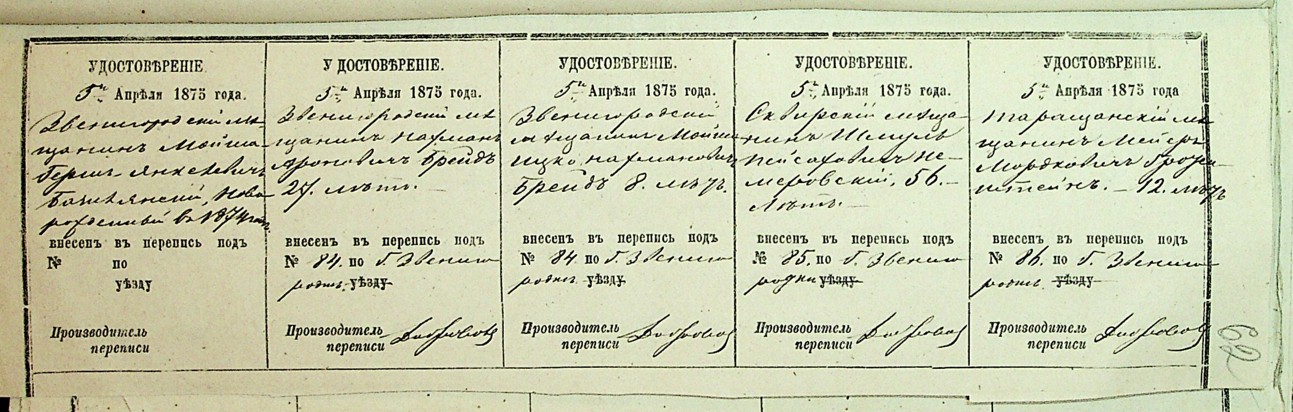 УДОСТОВѢРЕНІЕ.
5го Апрѣля 1875 года.
Звенигородскій мѣ-
щанинъ Мойша-
Гершъ Янкелевичъ
рожденный въ 1874 году
внесенъ въ перепись подъ
№ по
уѣзду
Производитель
переписи
УДОСТОВѢРЕНІЕ.
5го Апрѣля 1875 года.
Звенигородскій мѣ-
щанинъ Нахманъ
Ароновичъ Брейдъ
27. лѣтъ. —
внесенъ въ перепись подъ
№ 84. по г. Звениго
родкѣ. уѣзду
Производитель
переписи
УДОСТОВѢРЕНІЕ.
5го Апрѣля 1875 года.
Звенигородскій
мѣщанинъ Мойша
Ицко Нахмановичъ
Брейдъ 8. лѣтъ.
внесенъ въ перепись подъ
№ 84. по г. Звениго
родкѣ. уѣзду
Производитель
переписи
УДОСТОВѢРЕНІЕ.
5го Апрѣля 1875 года.
Сквирскій мѣща-
нинъ Шмуль
Пейсаховичъ Не-
меровскій, 56. —
лѣтъ. —
внесенъ въ перепись подъ
№ 85. по г. Звениго
родкѣ уѣзду
Производитель
переписи
УДОСТОВѢРЕНІЕ.
5го Апрѣля 1875 года
Таращанскій мѣ-
щанинъ Мейеръ
Мордковичъ
штейнъ. — 12. лѣтъ
внесенъ въ перепись подъ
№ 86. по г. Звениго
родкѣ. уѣзду
Производитель
переписи
62